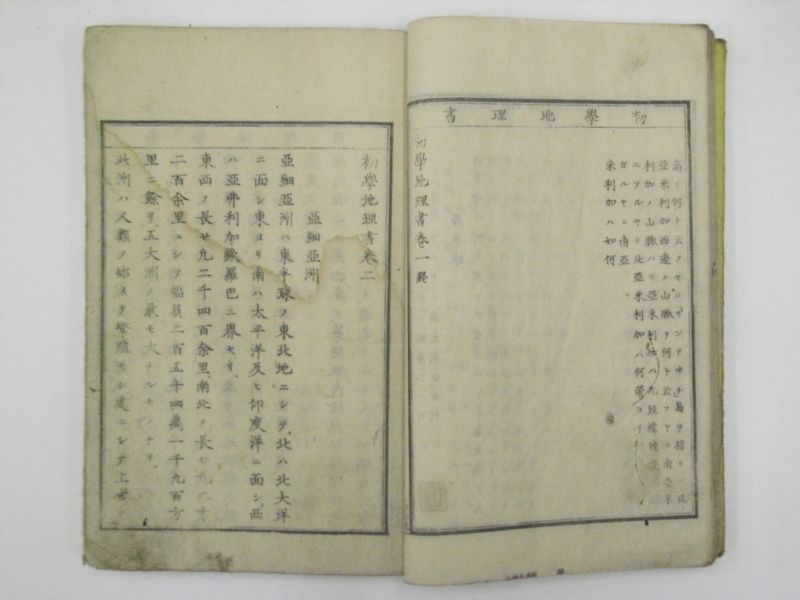 初學地理書
島ヲ何ト云フヤ○
亞米利加西邊ノ山脈ヲ何ト云フヤ○南亞米
利加ノ山脈ハ○亞米利加ハ
ニアルヤ○北亞米利加ハ何帶ヨリ
ガルヤ○南亞
米利加ハ如何
初學地理書卷一終
初學地理書卷二
亞細亞洲
亞細亞洲ハ東半球ノ東北地ニシテ北ハ北太洋
ニ面シ東ヨリ南ハ太平洋及ヒ印度洋ニ面シ西
ハ亞弗利加歐羅巴ニ界セリ
東西ノ長サ九二千四百余里南北ノ長サ九二千
二百余里ニシテ幅員二百五十四萬一千九百方
里ニ餘リ五大洲ノ最モ大ナルモノナリ
此洲ハ人類ノ始メテ繁殖セシ處ニシテ上古ノ